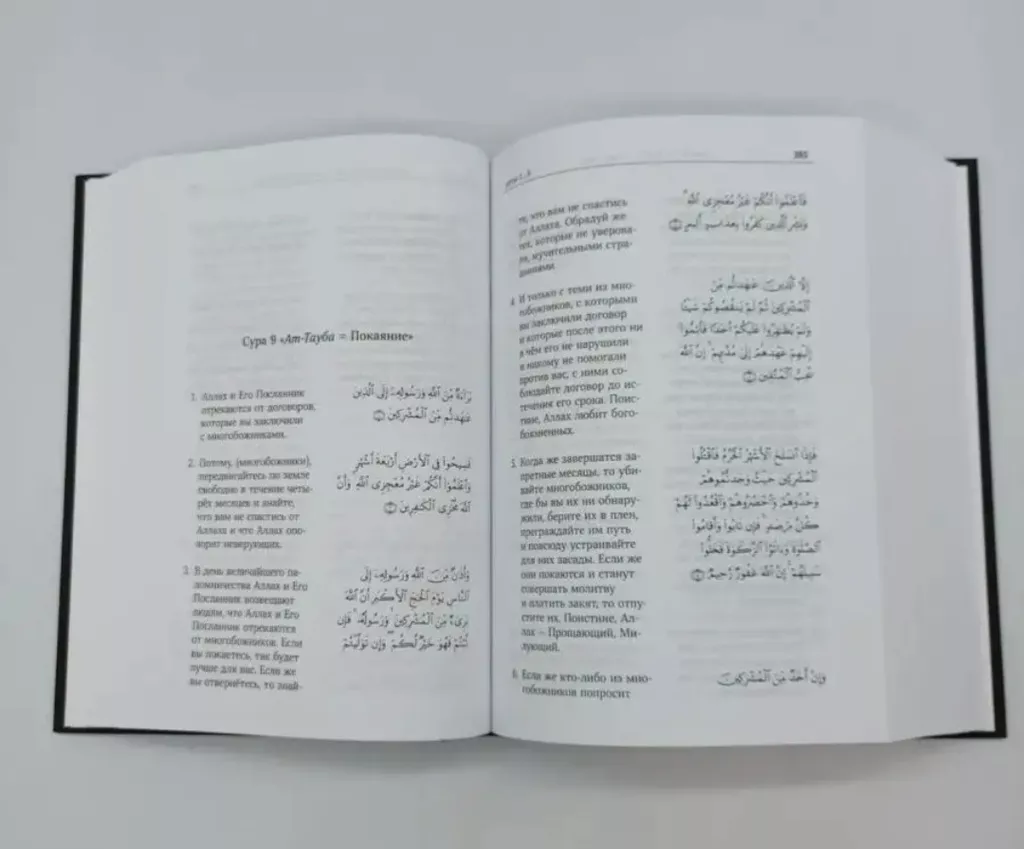 Сура 9 «Ат-Тауба = Покаяние»
1. Аллах и Его Посланник
отрекаются от договоров,
которые вы заключили
с многобожниками.
بَرَآءَةٌ مِّنَ ٱللَّهِ وَرَسُولِهِۦٓ إِلَى ٱلَّذِينَ
عَٰهَدتُّم مِّنَ ٱلْمُشْرِكِينَ ۝١
2. Потому, (многобожники),
передвигайтесь по земле
свободно в течение четы-
рёх месяцев и знайте,
что вам не спастись от
Аллаха и что Аллах опо-
зорит неверующих.
فَسِيحُوا۟ فِى ٱلْأَرْضِ أَرْبَعَةَ أَشْهُرٍ
وَٱعْلَمُوٓا۟ أَنَّكُمْ غَيْرُ مُعْجِزِى ٱللَّهِ ۙ وَأَنَّ
ٱللَّهَ مُخْزِى ٱلْكَٰفِرِينَ ۝٢
3. В день величайшего па-
ломничества Аллах и Его
Посланник возвещают
людям, что Аллах и Его
Посланник отрекаются
от многобожников. Если
вы покаетесь, так будет
лучше для вас. Если же
вы отвернётесь, то знай-
وَأَذَٰنٌ مِّنَ ٱللَّهِ وَرَسُولِهِۦٓ إِلَى
ٱلنَّاسِ يَوْمَ ٱلْحَجِّ ٱلْأَكْبَرِ أَنَّ ٱللَّهَ
بَرِىٓءٌ مِّنَ ٱلْمُشْرِكِينَ ۙ وَرَسُولُهُۥ ۚ فَإِن
تُبْتُمْ فَهُوَ خَيْرٌ لَّكُمْ ۖ وَإِن تَوَلَّيْتُمْ
385
те, что вам не спастись
от Аллаха. Обрадуй же
тех, которые не уверова-
ли, мучительными стра-
даниями.
فَٱعْلَمُوٓا۟ أَنَّكُمْ غَيْرُ مُعْجِزِى ٱللَّهِ ۗ
وَبَشِّرِ ٱلَّذِينَ كَفَرُوا۟ بِعَذَابٍ أَلِيمٍ ۝٣
4. И только с теми из мно-
гобожников, с которыми
вы заключили договор
и которые после этого ни
в чём его не нарушили
и никому не помогали
против вас, с ними со-
блюдайте договор до ис-
течения его срока. Поис-
тине, Аллах любит бого-
боязненных.
إِلَّا ٱلَّذِينَ عَٰهَدتُّم مِّنَ
ٱلْمُشْرِكِينَ ثُمَّ لَمْ يَنقُصُوكُمْ شَيْـًٔا
وَلَمْ يُظَٰهِرُوا۟ عَلَيْكُمْ أَحَدًا فَأَتِمُّوٓا۟
إِلَيْهِمْ عَهْدَهُمْ إِلَىٰ مُدَّتِهِمْ ۚ إِنَّ ٱللَّهَ
يُحِبُّ ٱلْمُتَّقِينَ ۝٤
5. Когда же завершатся за-
претные месяцы, то уби-
вайте многобожников,
где бы вы их ни обнару-
жили, берите их в плен,
преграждайте им путь
и повсюду устраивайте
для них засады. Если же
они покаются и станут
совершать молитву
и платить закят, то отпу-
стите их. Поистине, Ал-
лах – Прощающий, Ми-
лующий.
فَإِذَا ٱنسَلَخَ ٱلْأَشْهُرُ ٱلْحُرُمُ فَٱقْتُلُوا۟
ٱلْمُشْرِكِينَ حَيْثُ وَجَدتُّمُوهُمْ
وَخُذُوهُمْ وَٱحْصُرُوهُمْ وَٱقْعُدُوا۟ لَهُمْ
كُلَّ مَرْصَدٍ ۚ فَإِن تَابُوا۟ وَأَقَامُوا۟
ٱلصَّلَوٰةَ وَءَاتَوُا۟ ٱلزَّكَوٰةَ فَخَلُّوا۟
سَبِيلَهُمْ ۚ إِنَّ ٱللَّهَ غَفُورٌ رَّحِيمٌ ۝٥
6. Если же кто-либо из мно-
гобожников попросит
وَإِنْ أَحَدٌ مِّنَ ٱلْمُشْرِكِينَ